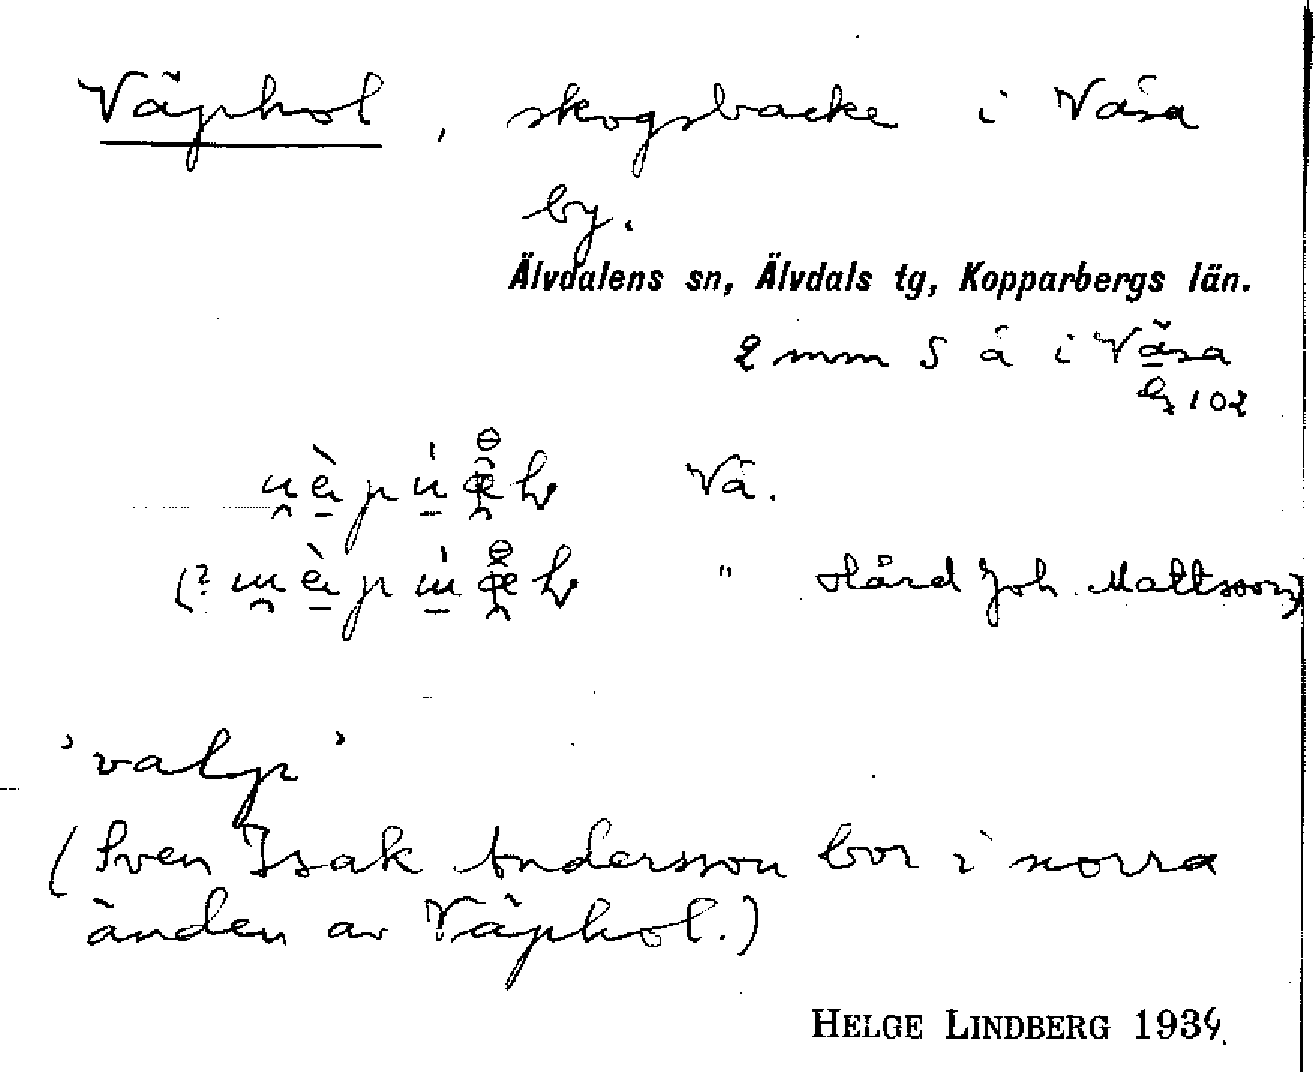 Väphol, skogsbacke i Väsa
by.
Älvdalens sn, Älvdals tg, Kopparbergs län.
2 mm S ä i Väsa
102
Vä.
(? " Hård Joh Mattsson)
'valp'
(Sven Isak Andersson bor i norra
änden av Väphol.)
HELGE LINDBERG 193